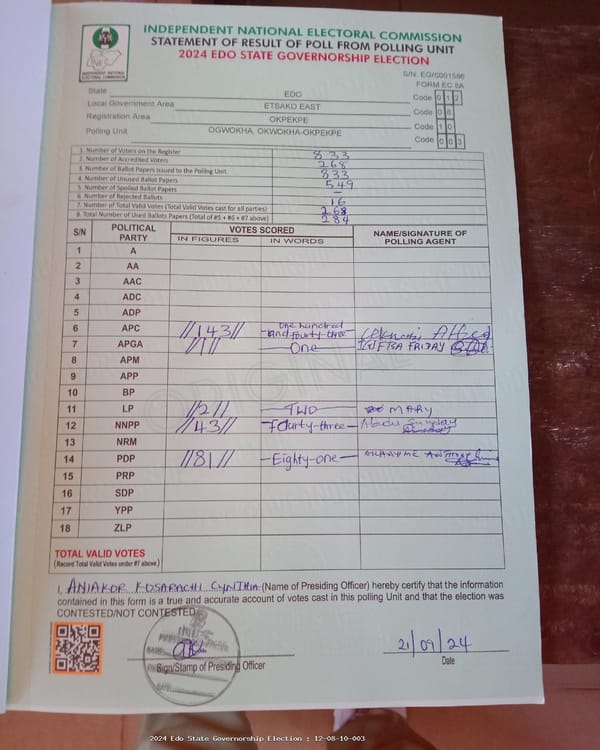 INDEPENDENT NATIONAL ELECTORAL COMMISSION
STATEMENT OF RESULT OF POLL FROM POLLING UNIT
2024 EDO STATE GOVERNORSHIP ELECTION
INDEPENDENT NATIONAL ELECTORAL COMMISSION
S/N: EG/0001566
FORM EC 8A
State EDO Code 0 1 2
Local Government Area ETSAKO EAST Code 0 8
Registration Area OKPEKPE Code 1 0
Polling Unit OGWOKHA, OKWOKHA-OKPEKPE Code 0 0 3
1. Number of Voters on the Register 833
2. Number of Accredited Voters 268
3. Number of Ballot Papers Issued to the Polling Unit 833
4. Number of Unused Ballot Papers 549
5. Number of Spoiled Ballot Papers –
6. Number of Rejected Ballots 16
7. Number of Total Valid Votes (Total Valid Votes cast for all parties) 268
8. Total Number of Used Ballots Papers (Total of #5 + #6 + #7 above) 284
S/N POLITICAL PARTY VOTES SCORED NAME/SIGNATURE OF POLLING AGENT
IN FIGURES IN WORDS
1 A
2 AA
3 AAC
4 ADC
5 ADP
6 APC //143// One hundred and fourty three
7 APGA //1// One FRIDAY
8 APM
9 APP
10 BP
11 LP //2// TWO MARY
12 NNPP //43// Fourty-three Sunday
13 NRM
14 PDP //81// Eighty-one
15 PRP
16 SDP
17 YPP
18 ZLP
TOTAL VALID VOTES
(Record Total Valid Votes under #7 above)
I, ANIAKOR KOSARACHI CYNTHIA (Name of Presiding Officer) hereby certify that the information
contained in this form is a true and accurate account of votes cast in this polling Unit and that the election was
CONTESTED/NOT CONTESTED
Sign/Stamp of Presiding Officer
21/09/24
Date
2024 Edo State Governorship Election : 12-08-10-003